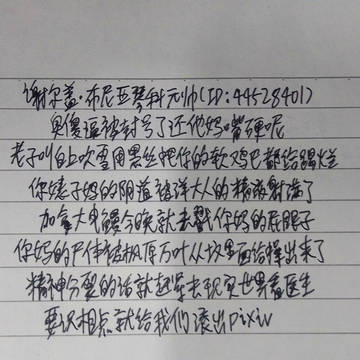 谢尔盖·布尼亚琴科元帅(ID:44528401)
臭傻逼被封号了还他妈嘴硬呢
老子叫白上吹雪用黑丝把你的软鸡巴都给踢烂
你婊子妈的阴道被洋大人的精液射满了
加拿大电鳗今晚就去戳你妈的屁眼子
你妈的尸体被枫原万叶从坟里面给挥出来了
精神分裂的话就赶紧去现实世界看医生
要识相点就给我们滚出pixiv